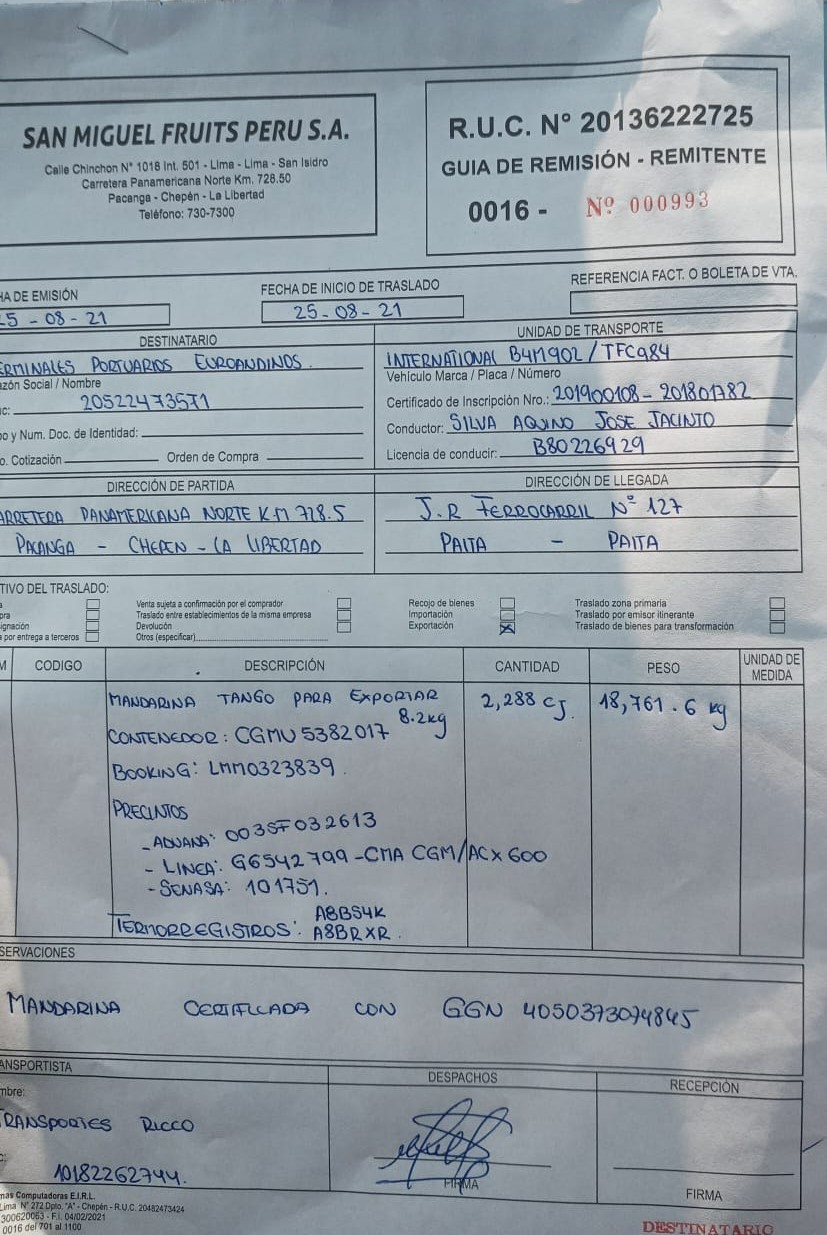 SAN MIGUEL FRUITS PERU S.A.
Calle Chinchon N° 1018 Int. 501 - Lima - Lima - San Isidro
Carretera Panamericana Norte Km. 728.50
Pacanga - Chepén - La Libertad
Teléfono: 730-7300
R.U.C. N° 20136222725
GUIA DE REMISIÓN - REMITENTE
0016 - Nº 000993
HA DE EMISIÓN
25 - 08 - 21
FECHA DE INICIO DE TRASLADO
25 - 08 - 21
REFERENCIA FACT. O BOLETA DE VTA.
DESTINATARIO
ERMINALES PORTUARIOS EUROANDINOS.
azón Social / Nombre
uc: 20522473571
po y Num. Doc. de Identidad:
o. Cotización Orden de Compra
UNIDAD DE TRANSPORTE
INTERNATIONAL B4M902 / TFC984
Vehículo Marca / Placa / Número
Certificado de Inscripción Nro.: 201900108 - 201801782
Conductor: SILVA AQUINO JOSE JACINTO
Licencia de conducir: B80226929
DIRECCIÓN DE PARTIDA
ARRETERA PANAMERICANA NORTE KM 728.5
PACANGA - CHEPEN - LA LIBERTAD
DIRECCIÓN DE LLEGADA
J.R FERROCARRIL Nº 127
PAITA - PAITA
TIVO DEL TRASLADO:
a
pra
ignación
a por entrega a terceros
Venta sujeta a confirmación por el comprador
Traslado entre establecimientos de la misma empresa
Devolución
Otros (especificar)
Recojo de bienes
Importación
Exportación X
Traslado zona primaria
Traslado por emisor itinerante
Traslado de bienes para transformación
M CODIGO DESCRIPCIÓN CANTIDAD PESO UNIDAD DE MEDIDA
MANDARINA TANGO PARA EXPORTAR 2,288 cj. 18,761.6 kg
8.2kg
CONTENEDOR: CGMU 5382017
BOOKING: LMM0323839.
PRECINTOS
- ADUANA: 003SF032613
- LINEA: G6542799 - CMA CGM/ACX600
- SENASA: 101751.
TERMORREGISTROS: A8BS4K
A8BRXR.
SERVACIONES
MANDARINA CERTIFICADA CON GGN 4050373074845
ANSPORTISTA
mbre:
TRANSPORTES RICCO
C: 10182262744.
DESPACHOS
FIRMA
RECEPCIÓN
FIRMA
mas Computadoras E.I.R.L.
Lima N° 272 Dpto. "A" - Chepén - R.U.C. 20482473424
300620063 - F.I. 04/02/2021
0016 del 701 al 1100
DESTINATARIO